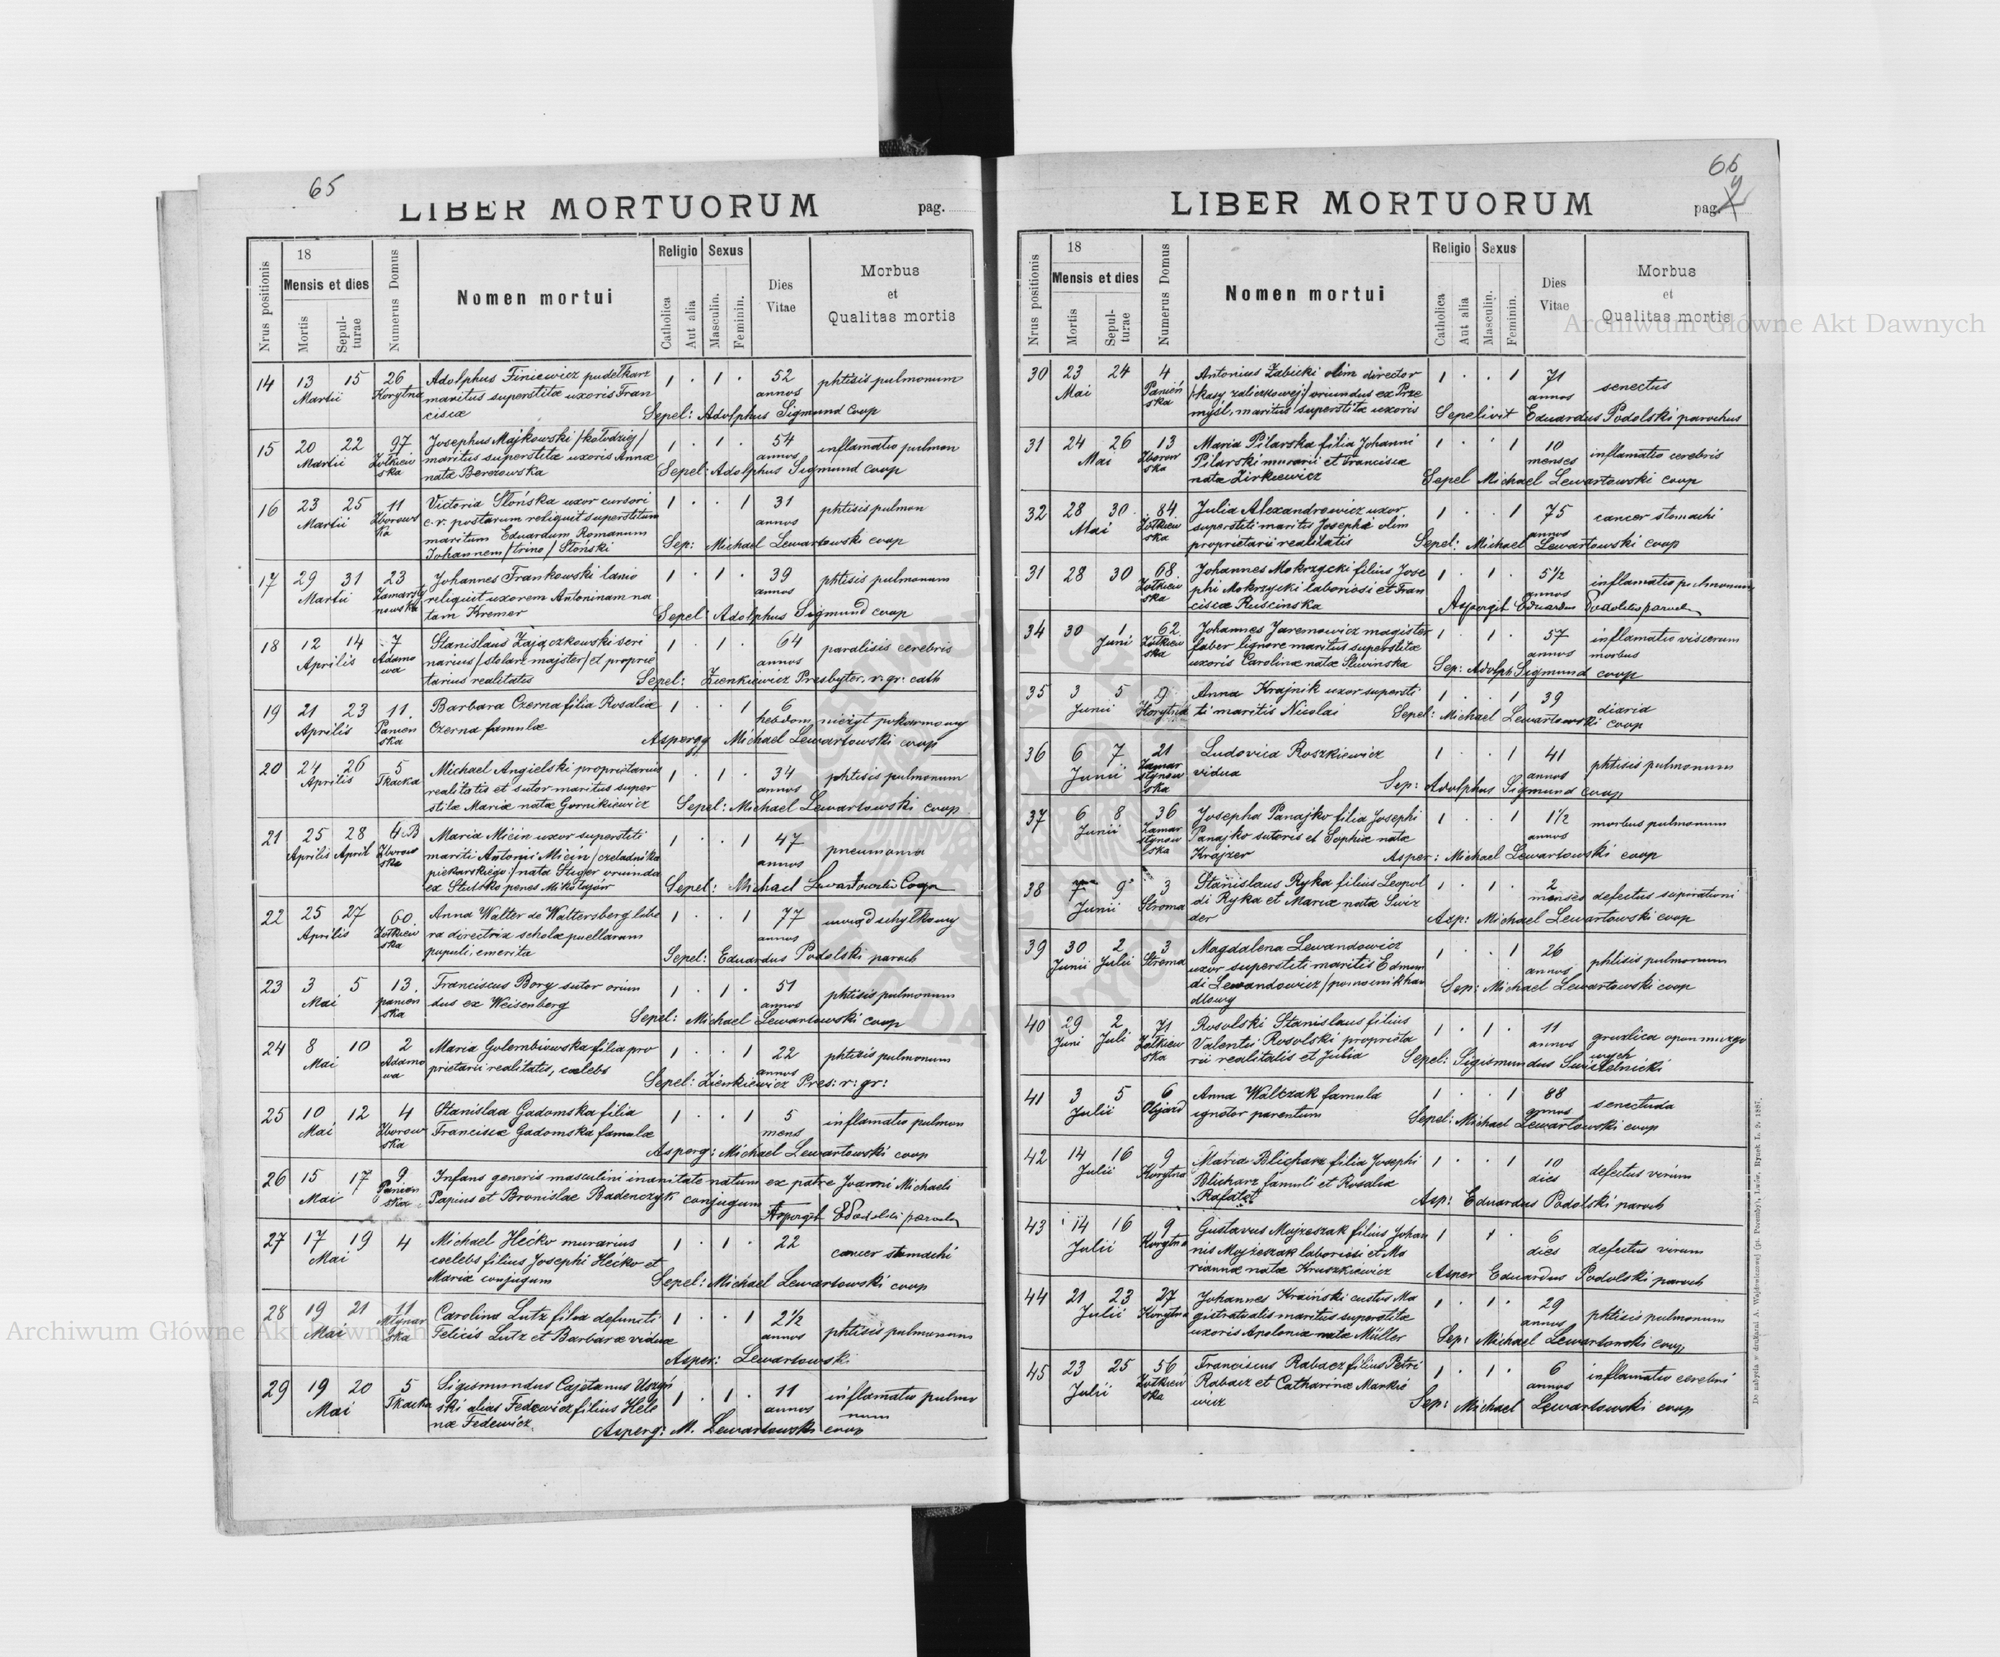 65
LIBER MORTUORUM
pag.
Nrus positionis
18
Mensis et dies
Mortis
Sepul-turae
Numerus Domus
Nomen mortui
Religio
Catholica
Aut alia
Sexus
Masculin.
Feminin.
Dies Vitae
Morbus et Qualitas mortis
14 13 15 26 Adolphus Finiewicz pudełkarz 1 · 1 · 52 phtisis pulmonum
Martii Korytna maritus superstitæ uxoris Fran annos
ciscæ Sepel: Adolphus Sigmund Coop
15 20 22 97 Josephus Majkowski /kołodziej/ 1 · 1 · 54 inflamatio pulmon
Martii Żółkiew maritus superstitæ uxoris Annæ annos
ska natæ Berezowska Sepel: Adolphus Sigmund coop
16 23 25 11 Victoria Słońska uxor cursori 1 · · 1 31 phtisis pulmon
Martii Zborows c. r. postarum reliquit superstitum annos
ka maritum Eduardum Romanum
Johannem /trino/ Słoński Sep: Michael Lewartowski coop
17 29 31 23 Johannes Frankowski lanio 1 · 1 · 39 phtisis pulmonum
Martii Zamarsty reliquit uxorem Antoninam na annos
nowska tam Kremer Sepel Adolphus Sigmund coop
18 12 14 7 Stanislaus Zajączkowski scri 1 · 1 · 64 paralisis cerebris
Aprilis Adamo narius /stolarz majster/ et proprie annos
wa tarius realitatis Sepel: Zienkiewicz Presbyter. r. gr: cath
19 21 23 11. Barbara Czerna filia Rosaliæ 1 · · 1 6
Aprilis Panień Czerna famulæ hebdom nieżyt pokarmowy
ska Asperg Michael Lewartowski coop
20 24 26 5 Michael Angielski proprietarius 1 · 1 · 34 phtisis pulmonum
Aprilis Tkacka realitatis et sutor maritus super annos
stitæ Mariæ natæ Gornikiewicz Sepel: Michael Lewartowski coop
21 25 28 4B Maria Micin uxor superstiti 1 · · 1 47 pneumonia
Aprilis April Zborow mariti Antonii Micin /czeladnika annos
ska piekarskiego/ nata Stiger oriunda
ex Stulsko penes Mikołajów Sepel: Michael Lewartowski Coop
22 25 27 60. Anna Walter de Waltersberg libe 1 · · 1 77 uwiąd schyłkowy
Aprilis Żółkiew ra directrix scholæ puellarum annos
ska pupuli, emerita Sepel: Eduardus Podolski paroch
23 3 5 13. Franciscus Bory sutor oriun 1 · 1 · 51 phtisis pulmonum
Mai panień dus ex Weisenberg annos
ska Sepel: Michael Lewartowski coop
24 8 10 2 Maria Golembiowska filia pro 1 · · 1 22 phtisis pulmonum
Mai Adamo prietarii realitatis, cœlebs annos
wa Sepel: Zienkiewicz Pres: r: gr:
25 10 12 4 Stanislaa Gadomska filia 1 · · 1 5 inflamatio pulmon
Mai Zborow Franciscæ Gadomska famulæ mens
ska Asperg: Michael Lewartowski coop
26 15 17 9 Infans generis masculini inanitate natum ex patre Joanni Michaeli
Mai Panień Papius et Bronislae Badenczyk conjugum
ska Aspergit EPodolski paroch
27 17 19 4 Michael Hećko murarius 1 · 1 · 22 cancer stomachi
Mai cœlebs filius Josephi Hećko et
Mariæ conjugum Sepel: Michael Lewartowski coop
28 19 21 11 Carolina Lutz filia defuncti 1 · · 1 2½ phtisis pulmonum
Mai Młynar Felicis Lutz et Barbaræ viduæ annos
ska Asper: Lewartowski
29 19 20 5 Sigismundus Cajetanus Uszyń 1 · 1 · 11 inflamatio pulmo
Mai Tkacka ski alias Fedewicz filius Hele annos num
næ Fedewicz Asperg: M. Lewartowski coop
66
9
LIBER MORTUORUM
pag.
Nrus positionis
18
Mensis et dies
Mortis
Sepul-turae
Numerus Domus
Nomen mortui
Religio
Catholica
Aut alia
Sexus
Masculin.
Feminin.
Dies Vitae
Morbus et Qualitas mortis
30 23 24 4 Antonius Zabicki olim director 1 · · 1 71 senectus
Mai Panień /kasy zaliczkowej/ oriundus ex Prze annos
ska myśl, maritus superstitæ uxoris Sepelivit Eduardus Podolski parochus
31 24 26 13 Maria Pilarska filia Johanni 1 · · 1 10 inflamatio cerebris
Mai Zborow Pilarski murarii et Franciscæ menses
ska natæ Zirkiewicz Sepel Michael Lewartowski coop
32 28 30 84. Julia Alexandrowicz uxor 1 · · 1 75 cancer stomachi
Mai Żółkiew superstiti maritis Josephi olim annos
ska proprietarii realitatis Sepel: Michael Lewartowski coop
31 28 30 68 Johannes Mokrzycki filius Jose 1 · 1 · 5½ inflamatio pulmonum
Żółkiew phi Mokrzycki laboriosi et Fran annos
ska ciscæ Ruscinska Aspergit Eduardus Podolski paroch
34 30 1 62 Johannes Jaremowicz magister 1 · 1 · 57 inflamatio viscerum
Juni Żółkiew faber lignore maritus superstitæ annos morbus
ska uxoris Carolinæ natæ Śliwinska Sep: Adolph Sigmund coop
35 3 5 9 Anna Krajnik uxor supersti 1 · · 1 39 diaria
Junii Korytna ti maritis Nicolai Sepel: Michael Lewartowski coop
36 6 7 21 Ludovica Roszkiewicz 1 · · 1 41 phtisis pulmonum
Junii Zamar vidua annos
stynow
ska Sep: Adolphus Sigmund coop
37 6 8 36 Josepha Panajko filia Josephi 1 · · 1 1½ morbus pulmonum
Junii Zamar Panajko sutoris et Sophiæ natæ annos
stynow Krajzer
ska Asper: Michael Lewartowski coop
38 7 9 3 Stanislaus Ryka filius Leopol 1 · 1 · 2 defectus supirationi
Junii Stroma di Ryka et Mariæ natæ Swiz menses
der Asp: Michael Lewartowski coop
39 30 2 3 Magdalena Lewandowicz 1 · · 1 26 phtisis pulmonum
Junii Julii Stroma uxor superstiti maritis Edmun annos
di Lewandowicz /pomocnik han
dlowy Sep: Michael Lewartowski coop
40 29 2 71 Rosolski Stanislaus filius 1 · 1 · 11 gruzlica opon muzgo
Juni Juli Żółkiew Valentii Rosolski proprieta annos wych
ska rii realitatis et Julia Sepel: Sigismundus Swistelnicki
41 3 5 6 Anna Waltzak famula 1 · · 1 88 senectuda
Julii Objazd ignotor parentum annos
Sepel: Michael Lewartowski coop
42 14 16 9 Maria Blicharz filia Josephi 1 · · 1 10 defectus virium
Julii Korytna Blicharz famuli et Rosaliæ dies
Rafałat Asp: Eduardus Podolski paroch
43 14 16 9 Gustavus Mojzeszak filius Johan 1 · 1 · 6 defectus virum
Julii Korytna nis Mojzeszak laboriosi et Ma dies
riannæ natæ Kruszkiewicz Asper Eduardus Podolski paroch
44 21 23 27 Johannes Krainski custus Ma 1 · 1 · 29 phtisis pulmonum
Julii Korytna gistratualis maritus superstitæ annos
uxoris Apoloniæ natæ Müller Sep: Michael Lewartowski coop
45 23 25 56 Franciscus Rabacz filius Petri 1 · 1 · 6 inflamatio cerebri
Julii Żółkiew Rabacz et Catharinæ Markie annos
ska wicz Sep: Michael Lewartowski coop
Archiwum Główne Akt Dawnych
Archiwum Główne Akt Dawnych